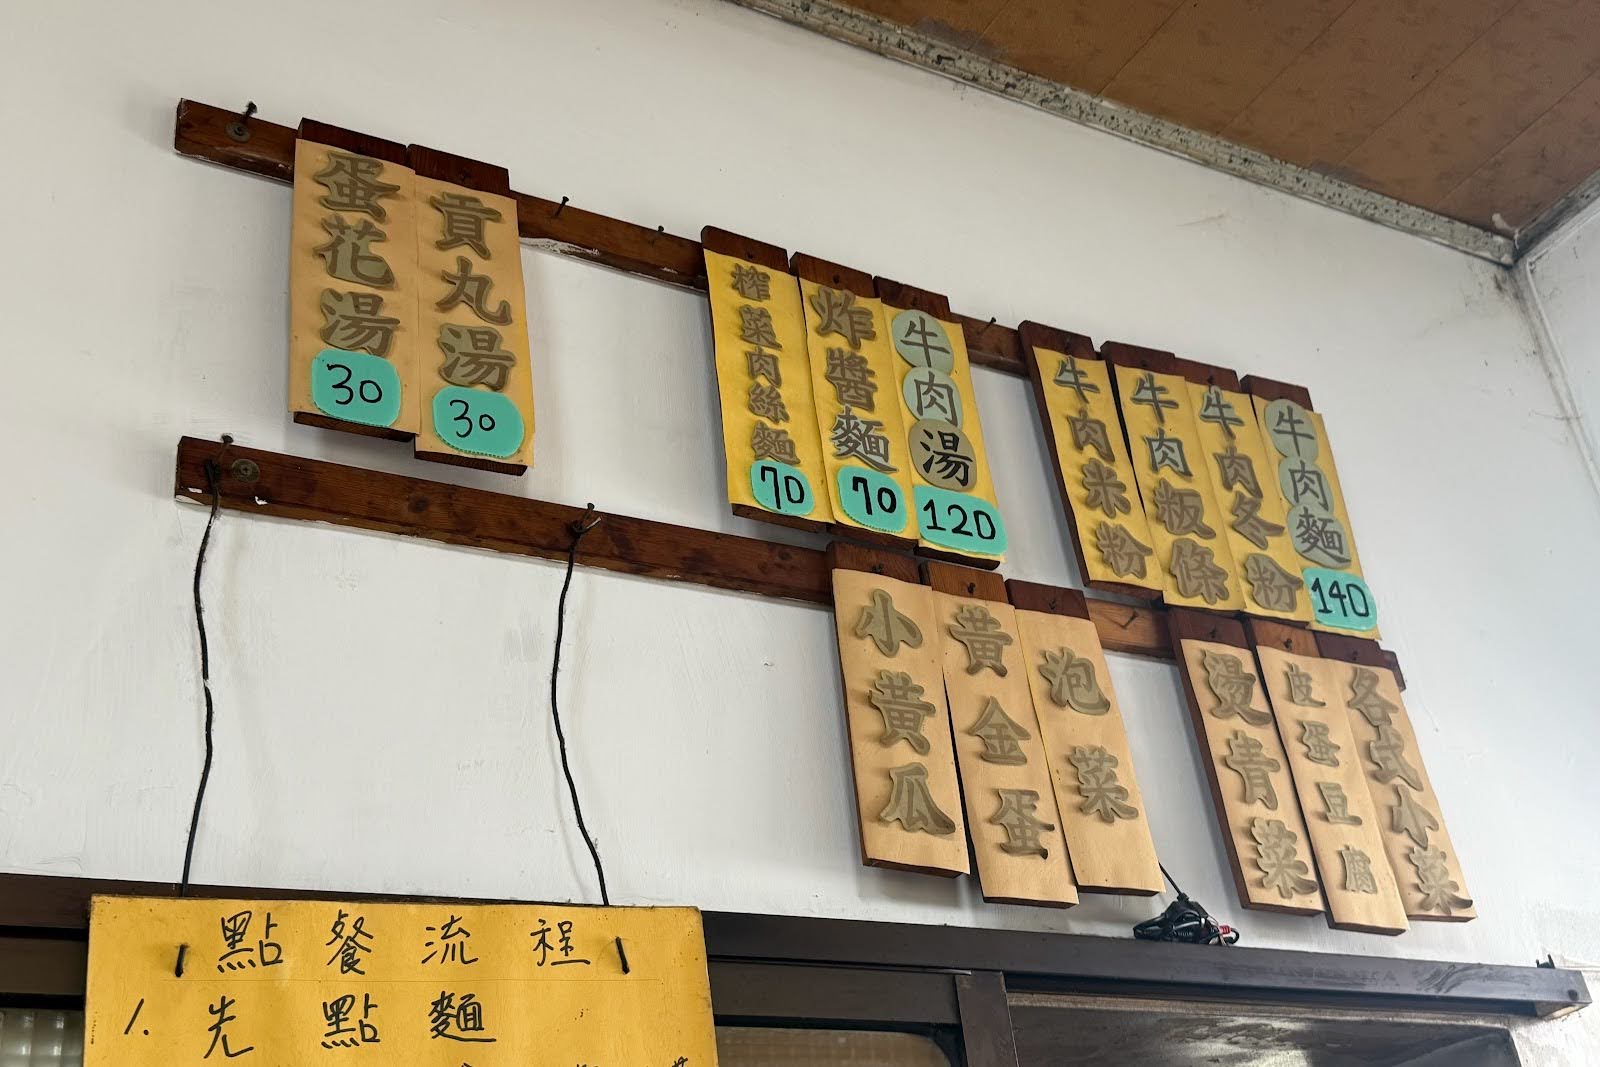 牛肉麵
140
牛肉冬粉
牛肉粄條
牛肉米粉
牛肉湯
120
炸醬麵
70
榨菜肉絲麵
70
貢丸湯
30
蛋花湯
30
各式小菜
皮蛋豆腐
燙青菜
泡菜
黃金蛋
小黃瓜
點餐流程
1. 先點麵